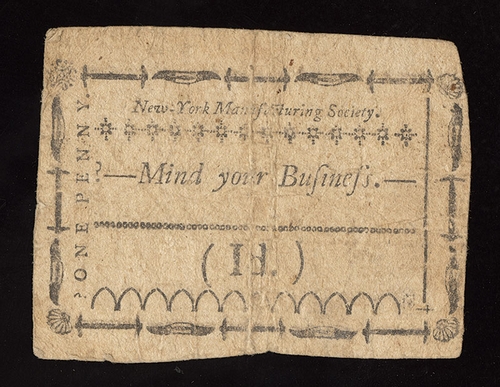 New-York Manufacturing Society.
—Mind your Buſineſs.—
ONE PENNY.